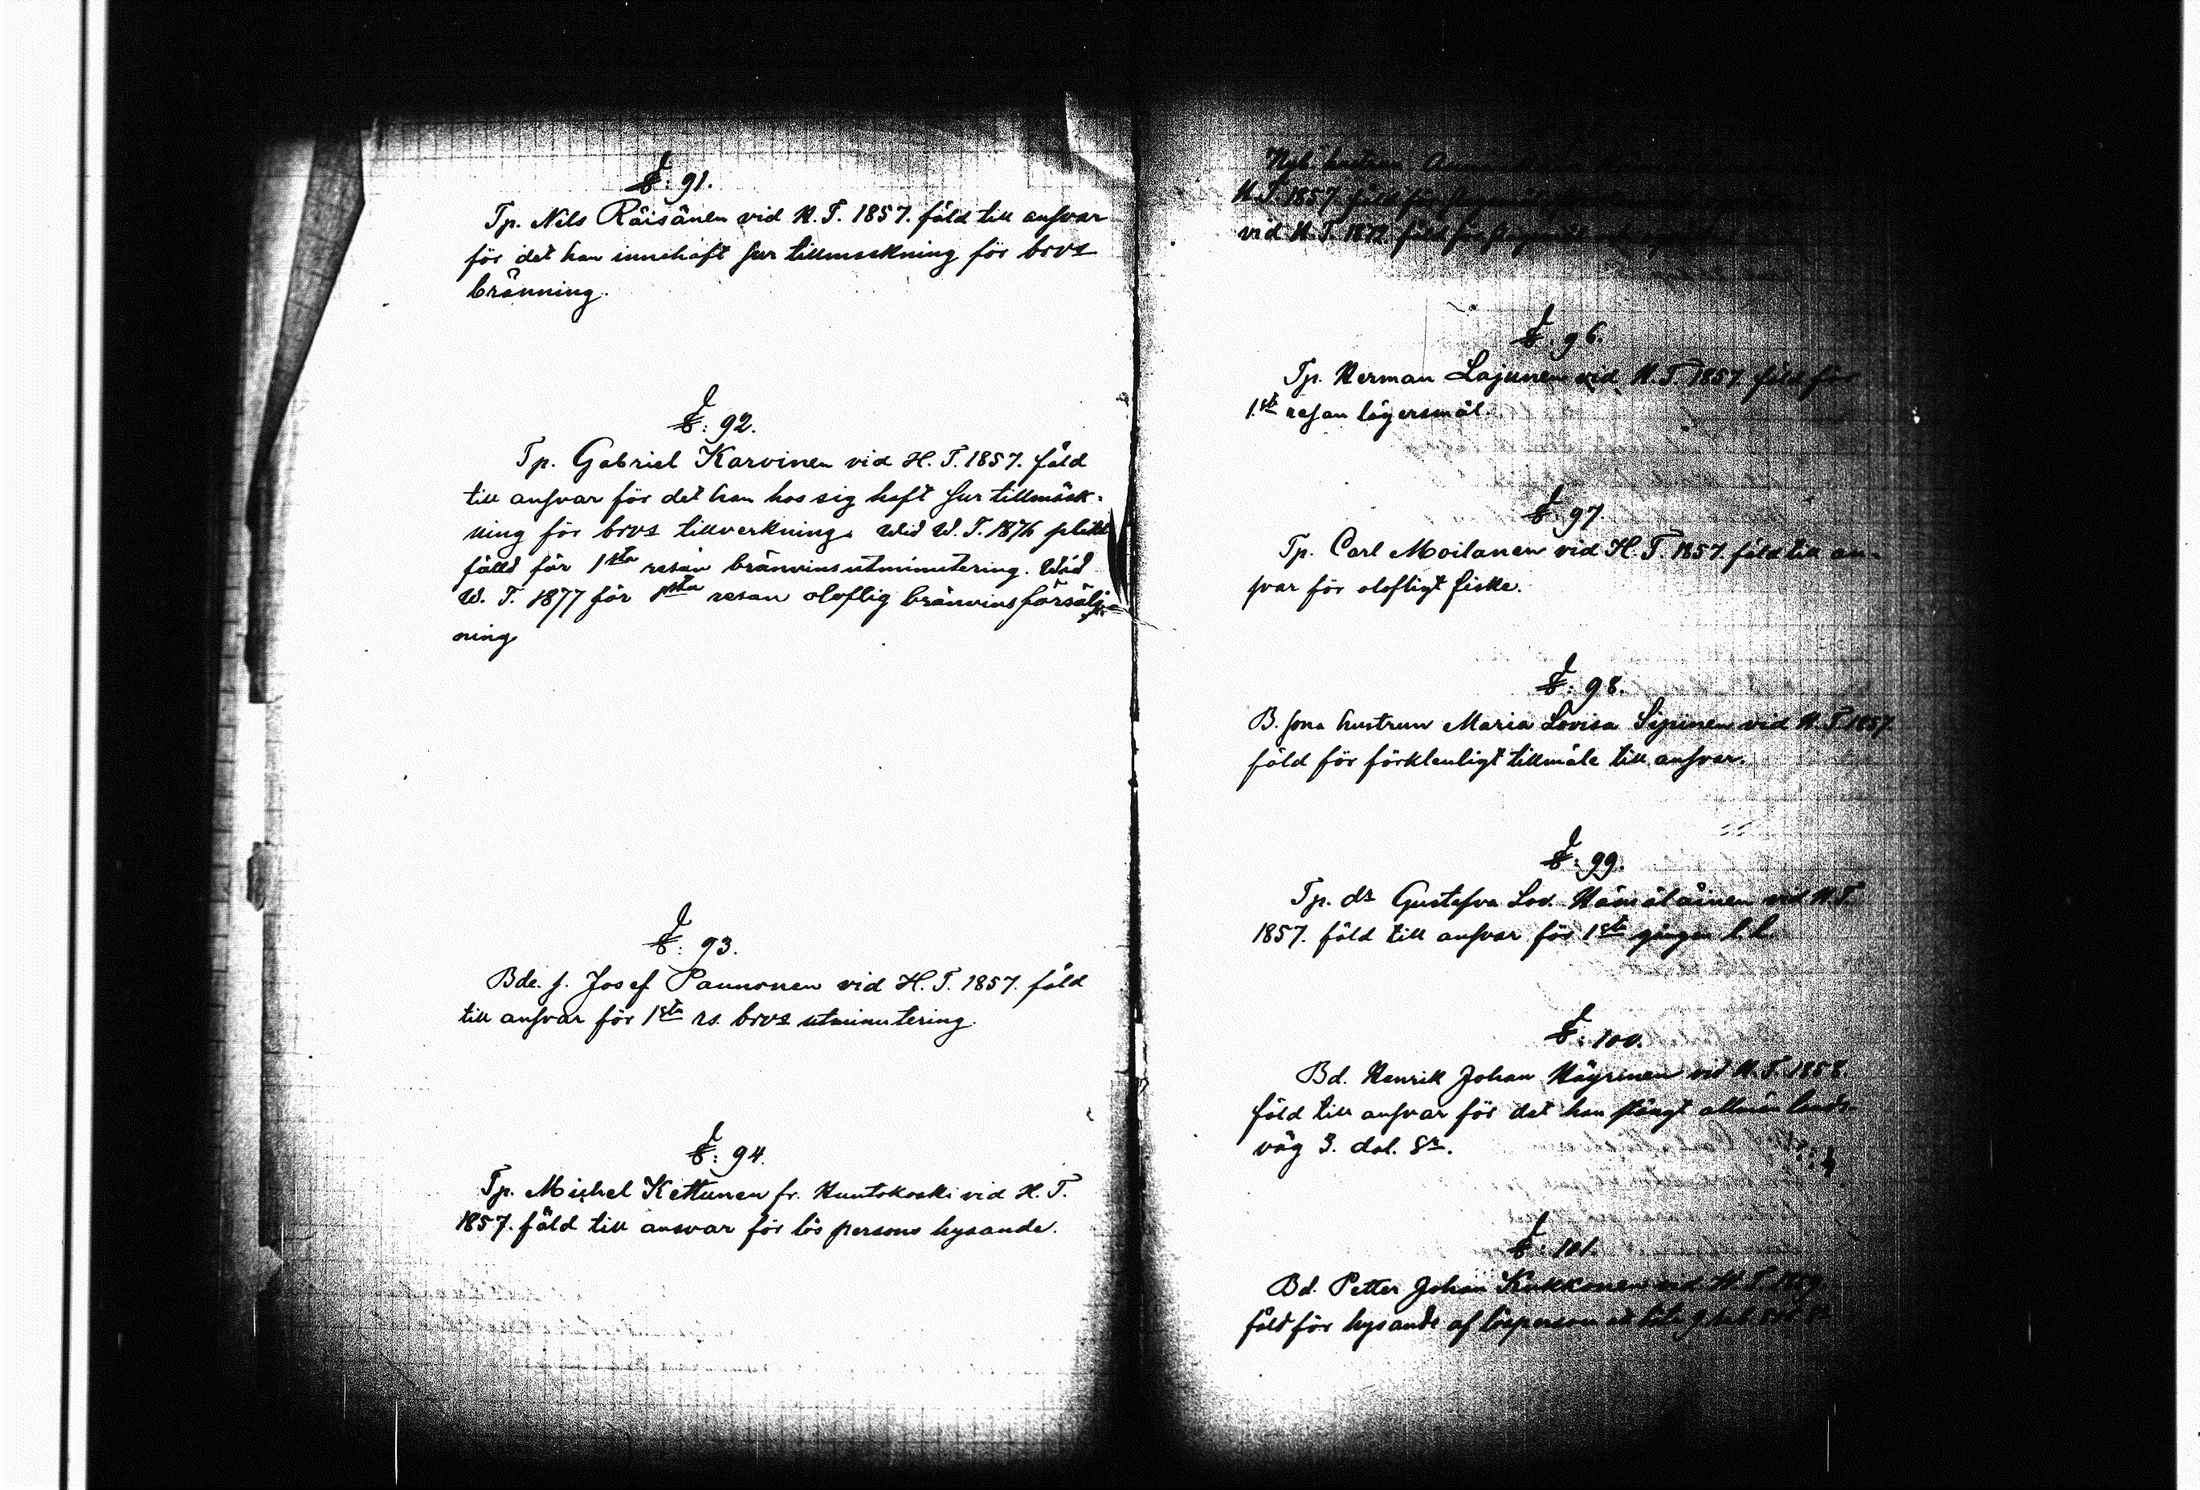 §: 91.
Tp. Nils Räisänen vid H. T. 1857. fäld till ansvar
för det han innehaft sur tillmäskning för brvs
bränning.
§: 92.
Tp. Gabriel Karvinen vid H. T. 1857. fäld
till ansvar för det han hos sig haft sur tillmäsk-
ning för brvs tillverkning. Wid W. T. 1876 plikt
fälld för 1sta resan bränvinsutminutering. Wid
W. T. 1877 för 1sta resan oloflig bränvinsförsälj-
ning
§: 93.
Bde. s. Josef Paunonen vid H. T. 1857. fäld
till ansvar för 1sta rs. brvs utminutering.
§: 94.
Tp. Michel Kettunen fr. Huntokoski vid H. T.
1857. fäld till ansvar för lös persons hysande.
Hyl. hustrun
H. T. 1857. fäld för
vid H. T. 1872 fäld för
§: 96.
Tp. Herman Lajunen vid H. T. 1857. fäld för
1sta resan lägersmål.
§: 97.
Tp. Carl Moilanen vid H. T. 1857. fäld till an-
svar för olofligt fiske.
§: 98.
B. sona hustrun Maria Lovisa Sipinen vid H. T. 1857.
fäld för förklenligt tillmäle till ansvar.
§: 99.
Tp. dr Gustafva Lov. Hämäläinen vid H. T.
1857. fäld till ansvar för 1sta gången l. l.
§: 100.
Bd. Henrik Johan Häyrinen vid H. T. 1858.
fäld till ansvar för det han stängt allmän lands-
väg 3. dal. Sr.
§: 101.
Bd. Petter Johan Kukkonen vid H. T. 1859.
fäld för hysande af lösperson